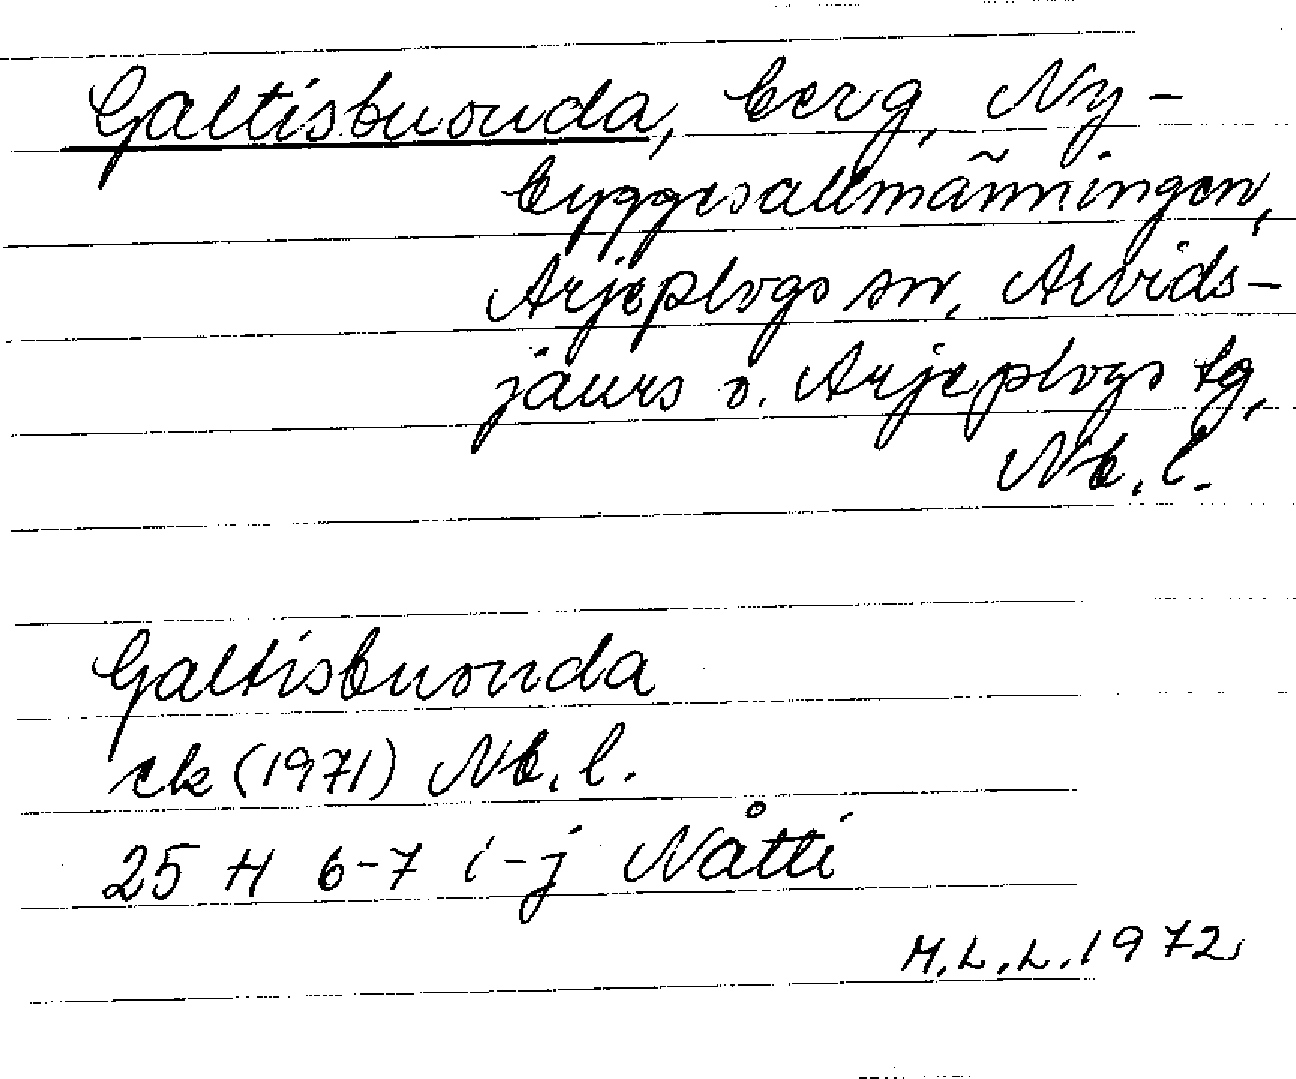 Galtisbuonda, berg, Ny-
byggesallmänningen,
Arjeplogs sn, Arvids-
jaurs o. Arjeplogs tg,
Nb. l.
Galtisbuonda
ek (1971) Nb. l.
25 H 6-7 i-j Nåtti
M.L.L. 1972